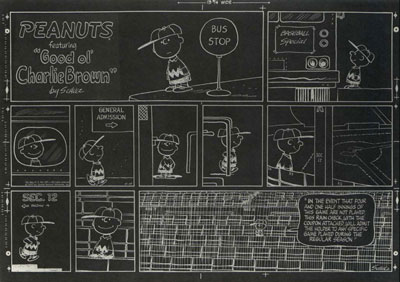 PEANUTS
featuring
"Good ol'
CharlieBrown"
by Schulz
BUS
STOP
BASEBALL
Special
GENERAL
ADMISSION
SEC. 12
"IN THE EVENT THAT FOUR
AND ONE HALF INNINGS OF
THIS GAME ARE NOT PLAYED
THIS RAIN CHECK WITH THE
COUPON ATTACHED WILL ADMIT
THE HOLDER TO ANY SPECIFIC
GAME PLAYED DURING THE
REGULAR SEASON"
SCHULZ